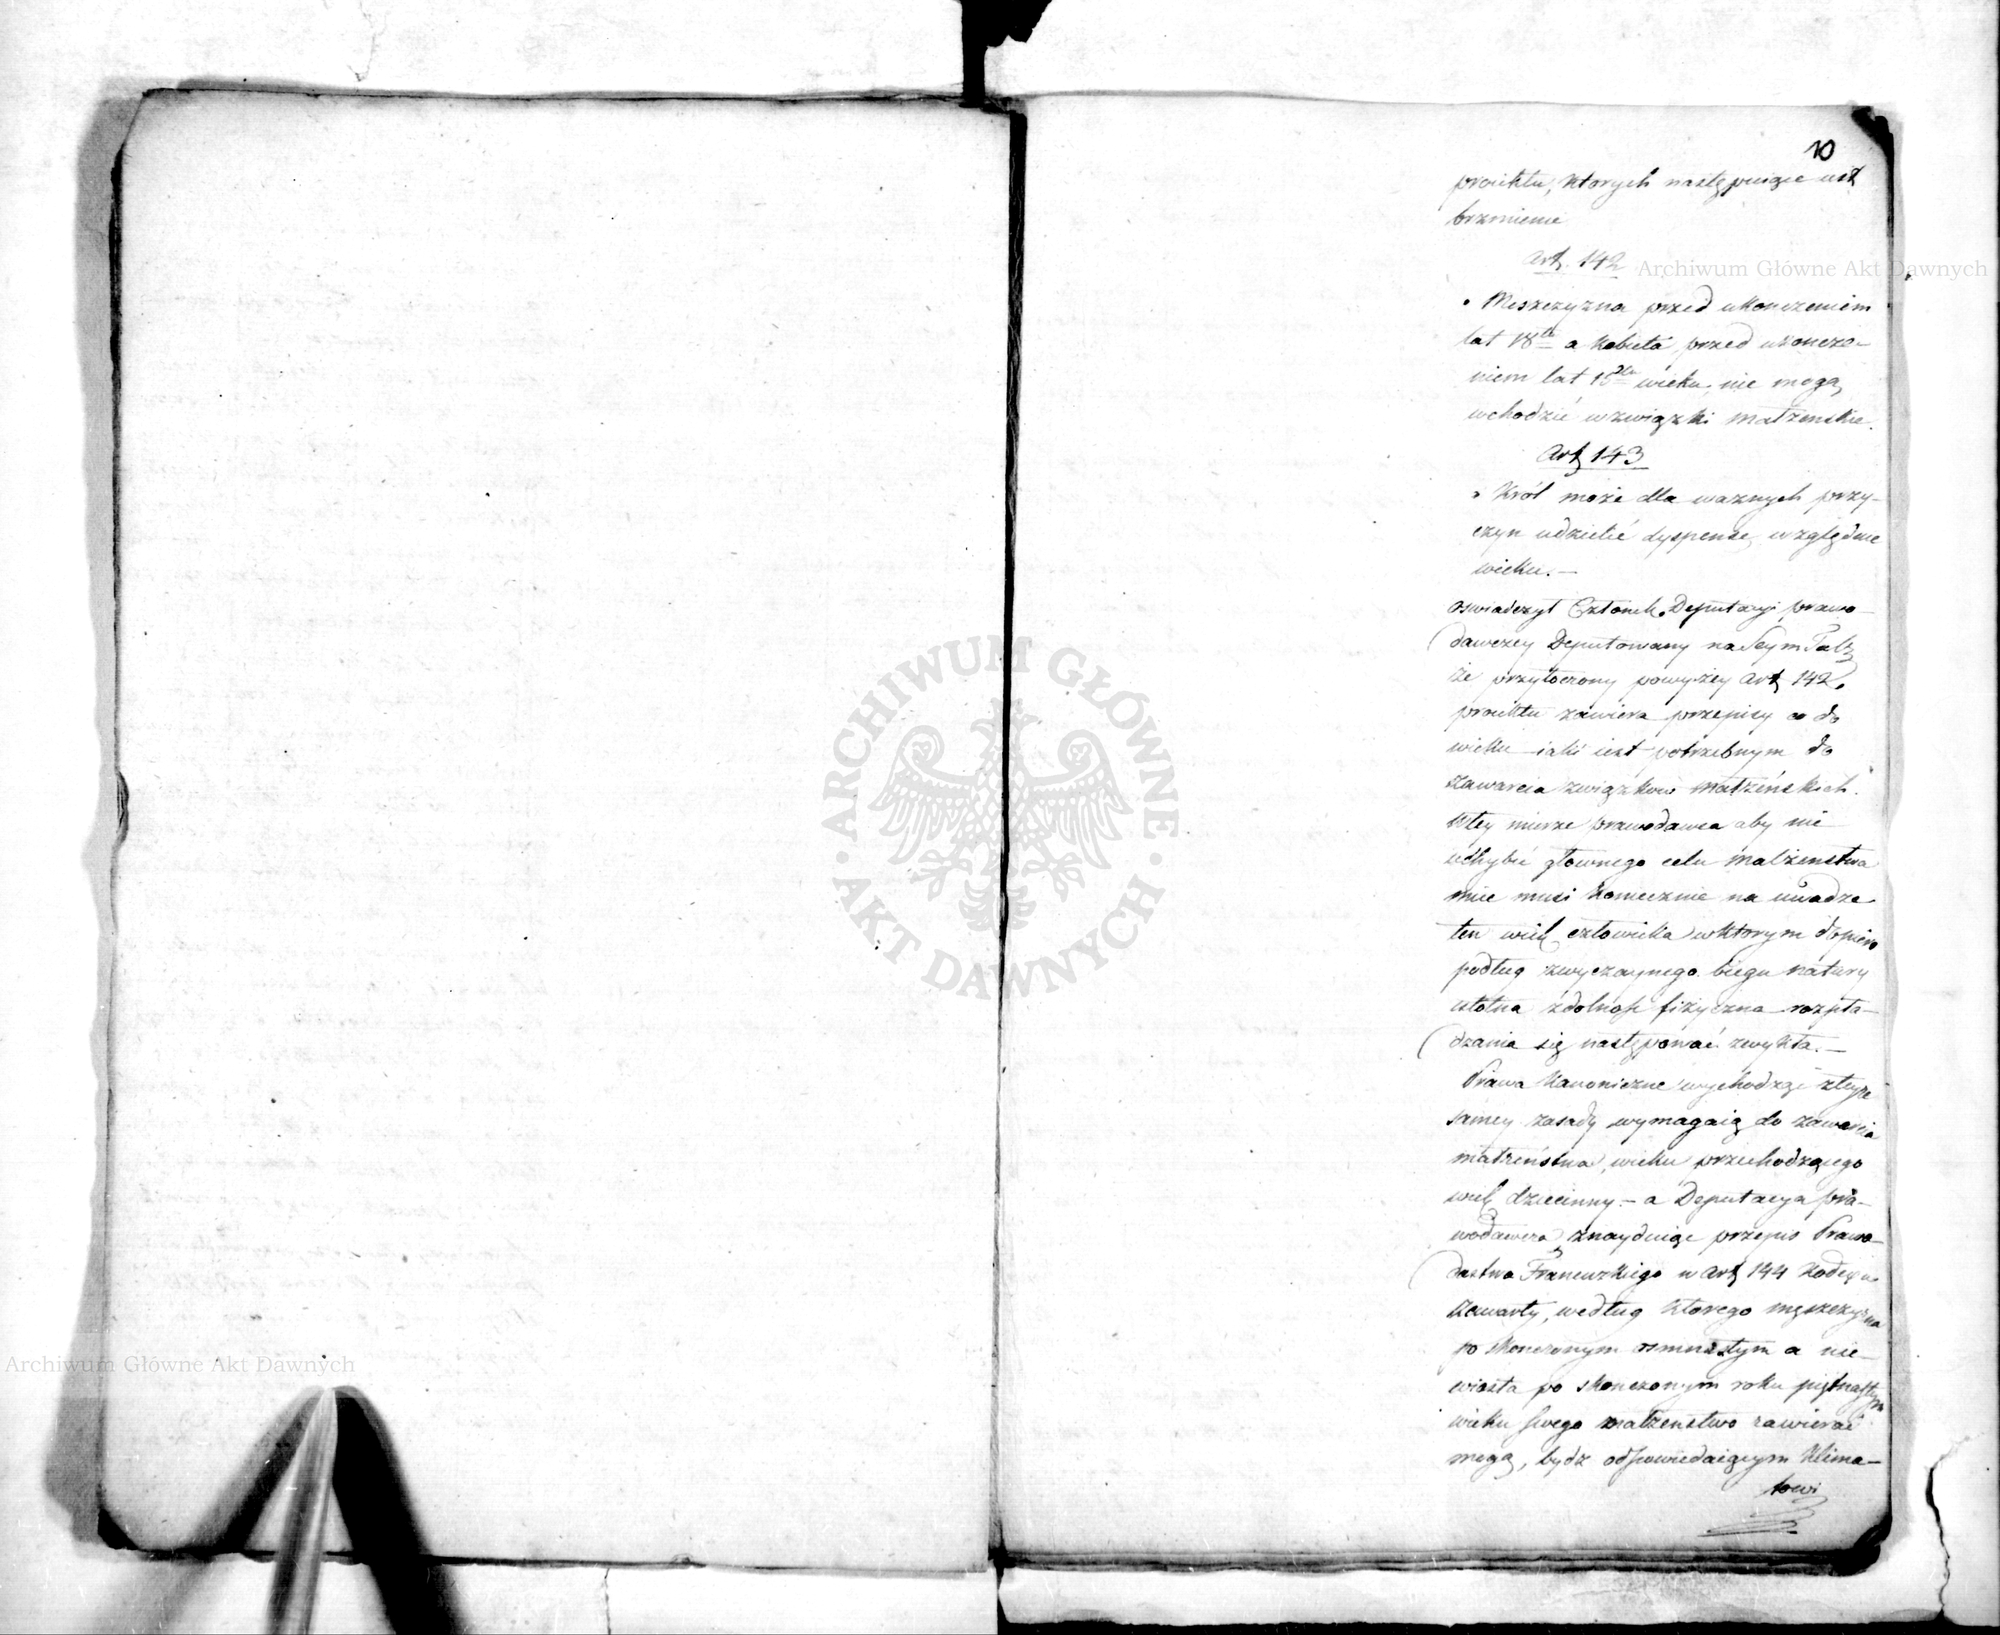 10
proiektu, ktorych następuiące iest
brzmienie
Art. 142
„ Męszczyzna przed ukonczeniem
lat 18tu a Kobieta przed ukoncze-
niem lat 15stu wieku, nie mogą
wchodzić w związki małżenskie.
Art 143
„ Król może dla ważnych przy-
czyn udzielić dyspensę względnie
wieku. —
oswiadczył Członek Deputacyi prawo-
dawczey Deputowany na Seym
że przytoczony powyżey Art 142.
proiektu zawiera przepisy co do
wieku iaki iest potrzebnym do
zawarcia związkow małżeńskich.
W tey mierze prawodawca aby nie
uchybić głownego celu małżenstwa
mieć musi koniecznie na uwadze
ten wiek człowieka w ktorym dopiero
podług zwyczaynego biegu natury
istotna zdolnosć fizyczna rozpła-
dzania się następować zwykła. —
Prawa Kanoniczne wychodząc z teyże
samey zasady wymagaią do zawarcia
małżeństwa, wieku przechodzącego
wiek dziecinny. — a Deputacya pra-
wodawcza, znayduiąc przepis Prawo-
dastwa Francuzkiego w Art 144 Kodexu
zawarty, według ktorego męszczyzna
po skonczonym osmnastym a nie-
wiasta po skonczonym roku piętnastym
wieku swego małżenstwo zawierać
mogą, bydź odpowiedaiącym klima-
towi
Archiwum Główne Akt Dawnych
ARCHIWUM GŁÓWNE
· AKT DAWNYCH ·
Archiwum Główne Akt Dawnych